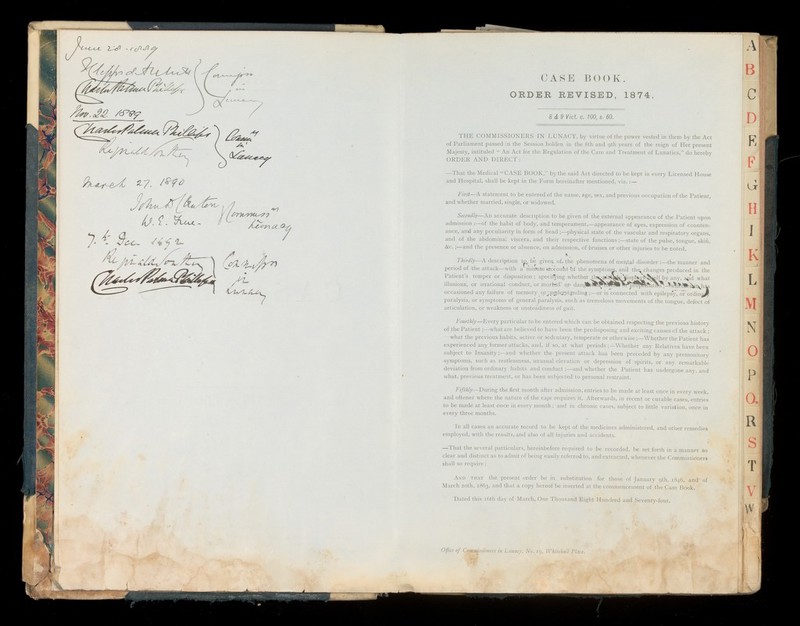 June 28 · 1889
Charles Palmer Phillips
Commrs
in
Lunacy
Nov. 22 1889
Charles Palmer Phillips
Lunacy
March 27. 1890
John D. Cleaton
W. E. Frere.
Lunacy
7. Dec 1892
Charles Palmer Phillips
in
Lunacy
CASE BOOK.
ORDER REVISED, 1874.
8 & 9 Vict. c. 100, s. 60.
THE COMMISSIONERS IN LUNACY, by virtue of the power vested in them by the Act
of Parliament passed in the Session holden in the 8th and 9th years of the reign of Her present
Majesty, intituled "An Act for the Regulation of the Care and Treatment of Lunatics," do hereby
ORDER AND DIRECT:
—That the Medical "CASE BOOK," by the said Act directed to be kept in every Licensed House
and Hospital, shall be kept in the Form hereinafter mentioned, viz. :—
First—A statement to be entered of the name, age, sex, and previous occupation of the Patient,
and whether married, single, or widowed.
Secondly—An accurate description to be given of the external appearance of the Patient upon
admission :—of the habit of body, and temperament,—appearance of eyes, expression of counten-
ance, and any peculiarity in form of head ;—physical state of the vascular and respiratory organs,
and of the abdominal viscera, and their respective functions ;—state of the pulse, tongue, skin,
&c. ;—and the presence or absence, on admission, of bruises or other injuries to be noted.
Thirdly—A description to be given of the phenomena of mental disorder :—the manner and
period of the attack—with a minute account of the symptoms, and the changes produced in the
Patient's temper or disposition ; specifying whether the by any, and what
illusions, or irrational conduct, or
occasioned any failure of memory or understanding ;—or is connected with epilepsy, or ordinary
paralysis, or symptoms of general paralysis, such as tremulous movements of the tongue, defect of
articulation, or weakness or unsteadiness of gait.
Fourthly—Every particular to be entered which can be obtained respecting the previous history
of the Patient :—what are believed to have been the predisposing and exciting causes of the attack ;
—what the previous habits, active or sedentary, temperate or otherwise ;—Whether the Patient has
experienced any former attacks, and, if so, at what periods ;—Whether any Relatives have been
subject to Insanity ;—and whether the present attack has been preceded by any premonitory
symptoms, such as restlessness, unusual elevation or depression of spirits, or any remarkable
deviation from ordinary habits and conduct ;—and whether the Patient has undergone any, and
what, previous treatment, or has been subjected to personal restraint.
Fifthly—During the first month after admission, entries to be made at least once in every week,
and oftener where the nature of the case requires it. Afterwards, in recent or curable cases, entries
to be made at least once in every month ; and in chronic cases, subject to little variation, once in
every three months.
In all cases an accurate record to be kept of the medicines administered, and other remedies
employed, with the results, and also of all injuries and accidents.
—That the several particulars, hereinbefore required to be recorded, be set forth in a manner so
clear and distinct as to admit of being easily referred to, and extracted, whenever the Commissioners
shall so require :
AND THAT the present order be in substitution for those of January 9th, 1846, and of
March 20th, 1865, and that a copy hereof be inserted at the commencement of the Case Book.
Dated this 16th day of March, One Thousand Eight Hundred and Seventy-four.
Office of Commissioners in Lunacy, No. 19, Whitehall Place.
A
B
C
D
E
F
G
H
I
K
L
M
N
O
P
Q
R
S
T
V
W